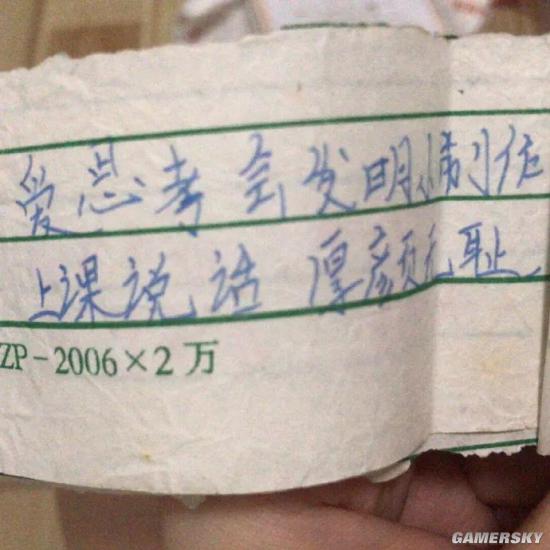 爱思考会发明小制作
上课说话 厚颜无耻
ZP-2006×2万
GAMERSKY